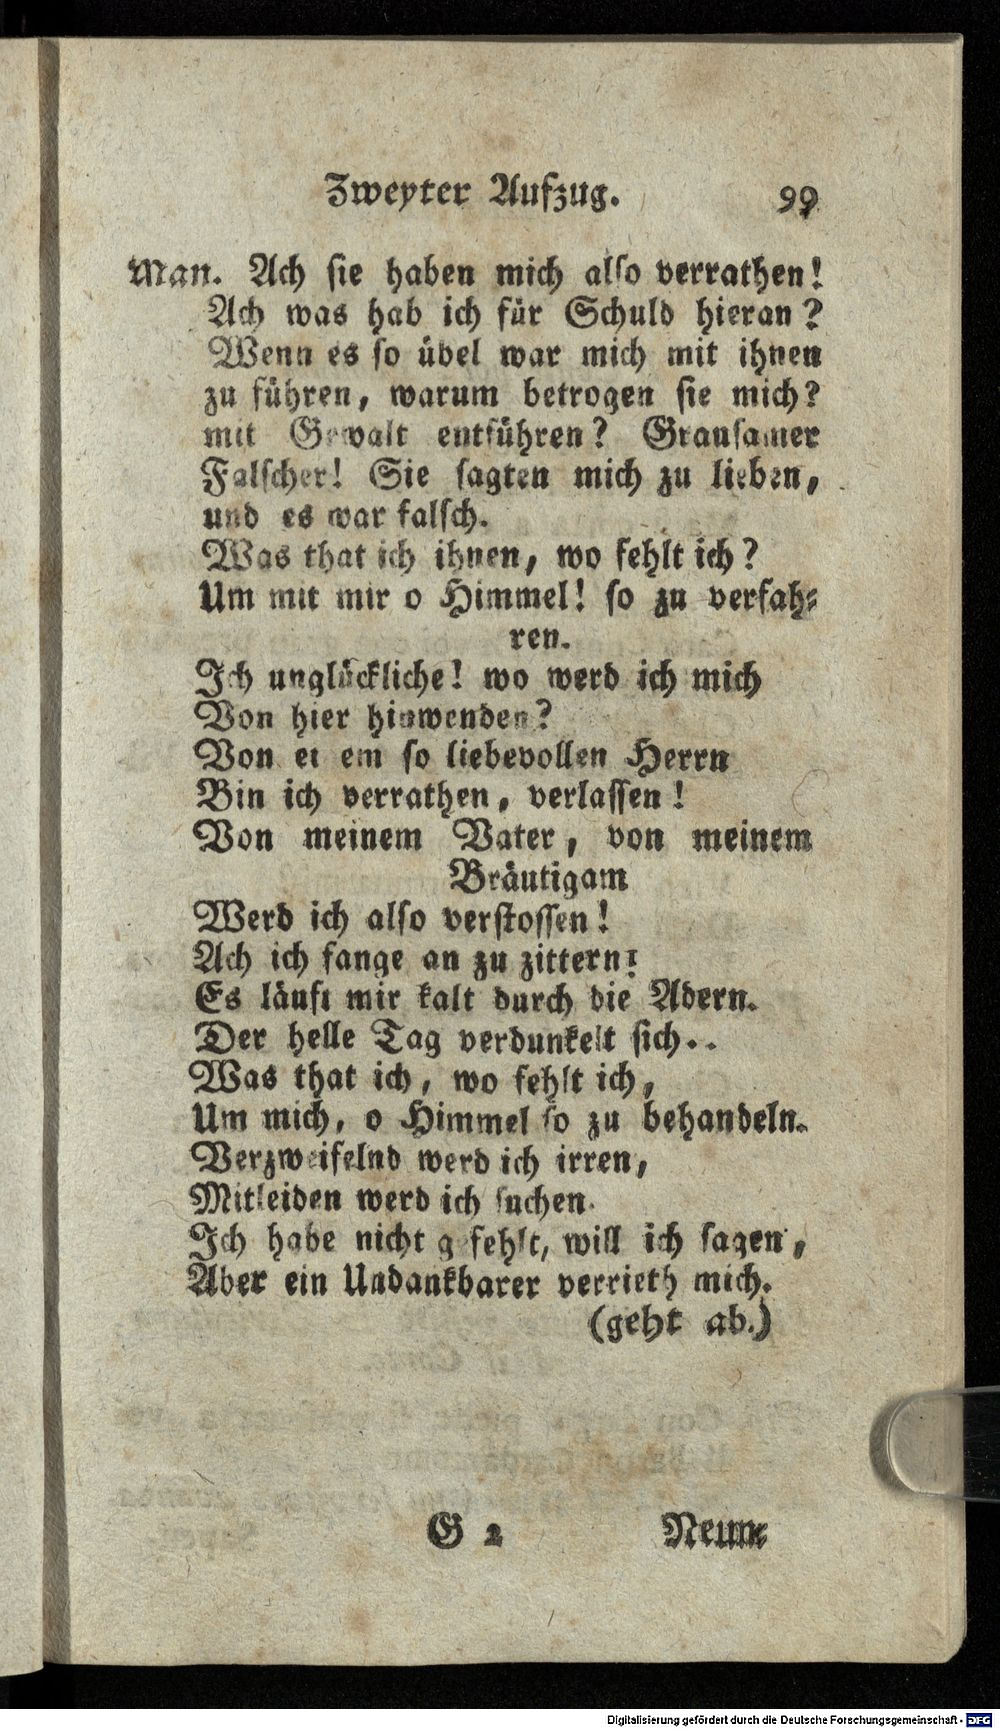 Zweyter Aufzug. 99
Man. Ach sie haben mich also verrathen!
Ach was hab ich für Schuld hieran?
Wenn es so übel war mich mit ihnen
zu führen, warum betrogen sie mich?
mit Gewalt entführen? Grausamer
Falscher! Sie sagten mich zu lieben,
und es war falsch.
Was that ich ihnen, wo fehlt ich?
Um mit mir o Himmel! so zu verfah-
ren.
Ich unglückliche! wo werd ich mich
Von hier hinwenden?
Von einem so liebevollen Herrn
Bin ich verrathen, verlassen!
Von meinem Vater, von meinem
Bräutigam
Werd ich also verstossen!
Ach ich fange an zu zittern:
Es läuft mir kalt durch die Adern.
Der helle Tag verdunkelt sich..
Was that ich, wo fehlt ich,
Um mich, o Himmel so zu behandeln.
Verzweifelnd werd ich irren,
Mitleiden werd ich suchen.
Ich habe nicht gefehlt, will ich sagen,
Aber ein Undankbarer verrieth mich.
(geht ab.)
G 2 Neun-
Digitalisierung gefördert durch die Deutsche Forschungsgemeinschaft - DFG